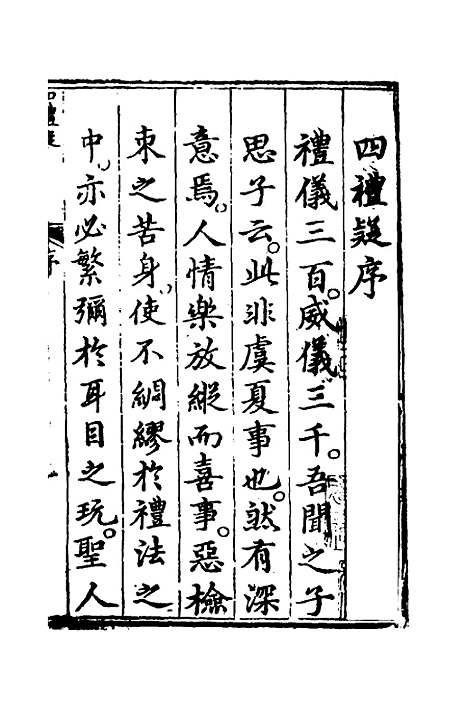 四禮疑序
禮儀三百。威儀三千。吾聞之子
思子云。此非虞夏事也。然有深
意焉。人情樂放縱而喜事。惡檢
束之苦身、使不綢繆於禮法之
中、亦必繁彌於耳目之玩。聖人
序